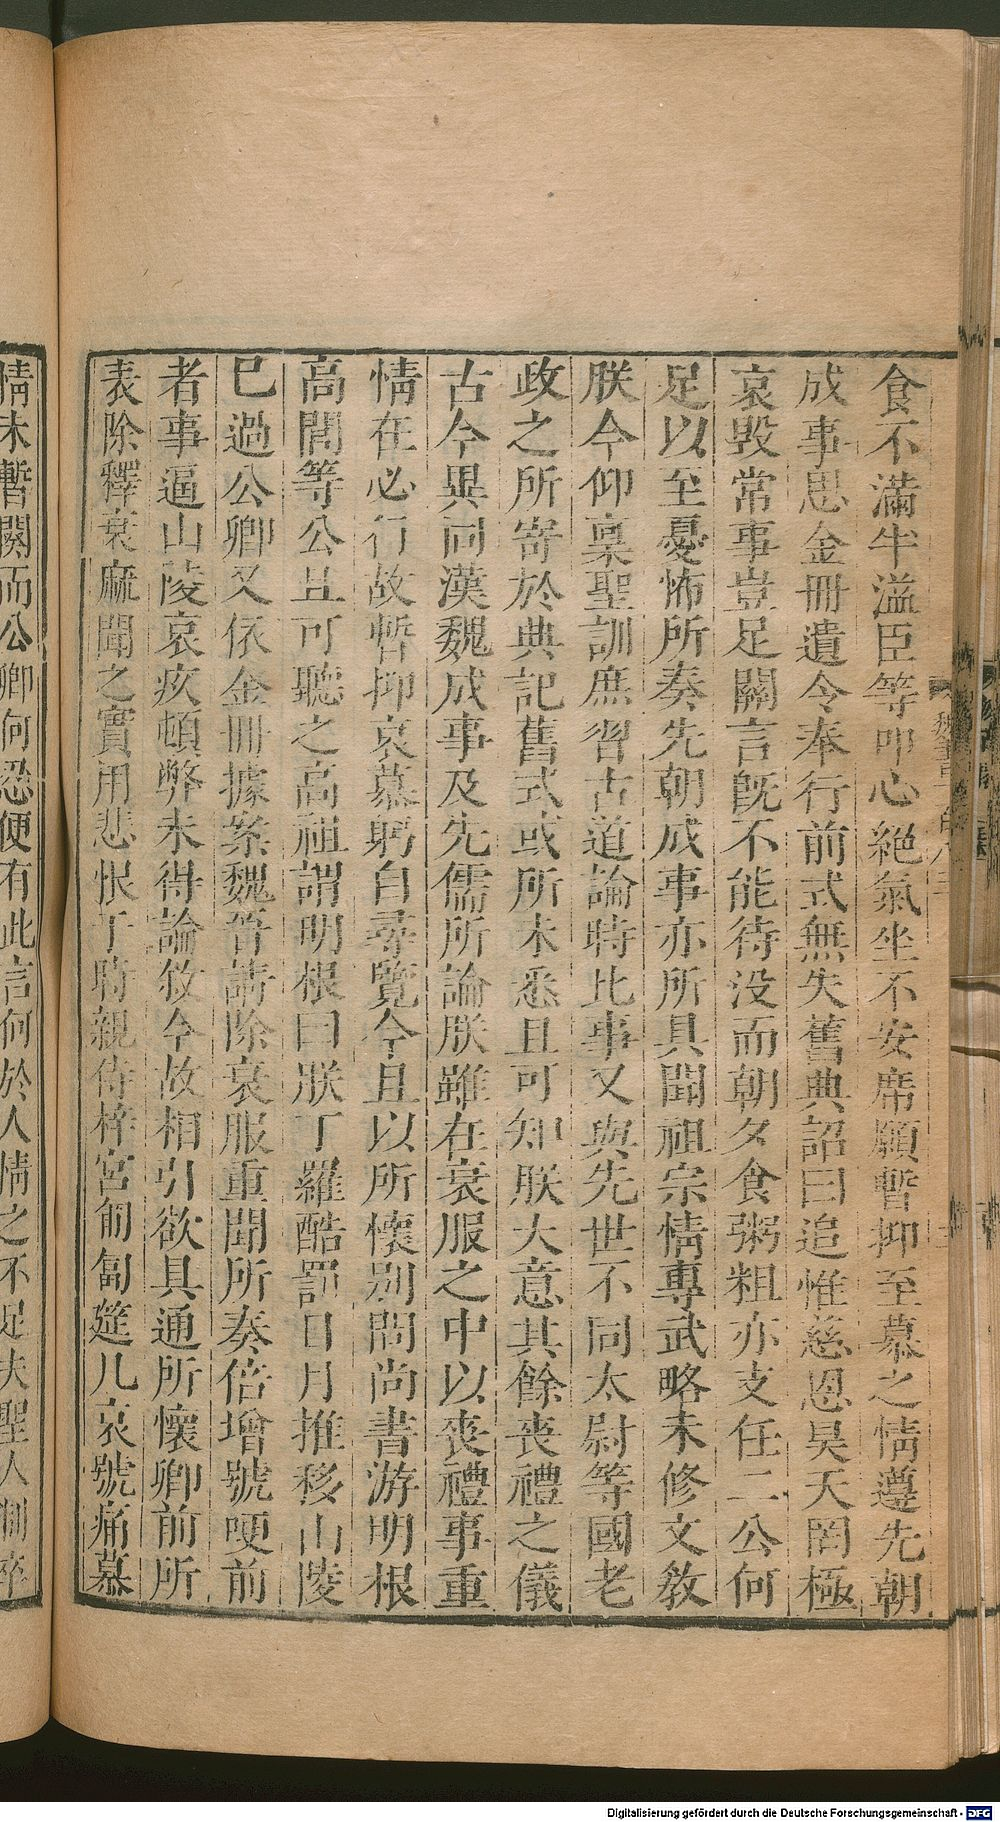 食不滿半溢臣等叩心絕氣坐不安席願暫抑至慕之情遵先朝
成事思金冊遺令奉行前式無失舊典詔曰追惟慈恩昊天罔極
哀毀常事豈足關言既不能待没而朝夕食粥粗亦支任二公何
足以至憂怖所奏先朝成事亦所具聞祖宗情專武略未修文教
朕今仰稟聖訓庶習古道論時比事又與先世不同太尉等國老
政之所寄於典記舊式或所未悉且可知朕大意其餘喪禮之儀
古今異同漢魏成事及先儒所論朕雖在衰服之中以喪禮事重
情在必行故暫抑哀慕躬自尋覽今且以所懷別問尚書游明根
高閭等公且可聽之高祖謂明根曰朕丁羅酷罰日月推移山陵
巳過公卿又依金冊據案魏晉請除衰服重聞所奏倍增號哽前
者事逼山陵哀疚頓弊未得論敘今故相引欲具通所懷卿前所
表除釋衰麻聞之實用悲恨于時親侍梓宮匍匐筵几哀號痛慕
情未暫闋而公卿何忍便有此言何於人情之不足夫聖人制卒
Digitalisierung gefördert durch die Deutsche Forschungsgemeinschaft - DFG